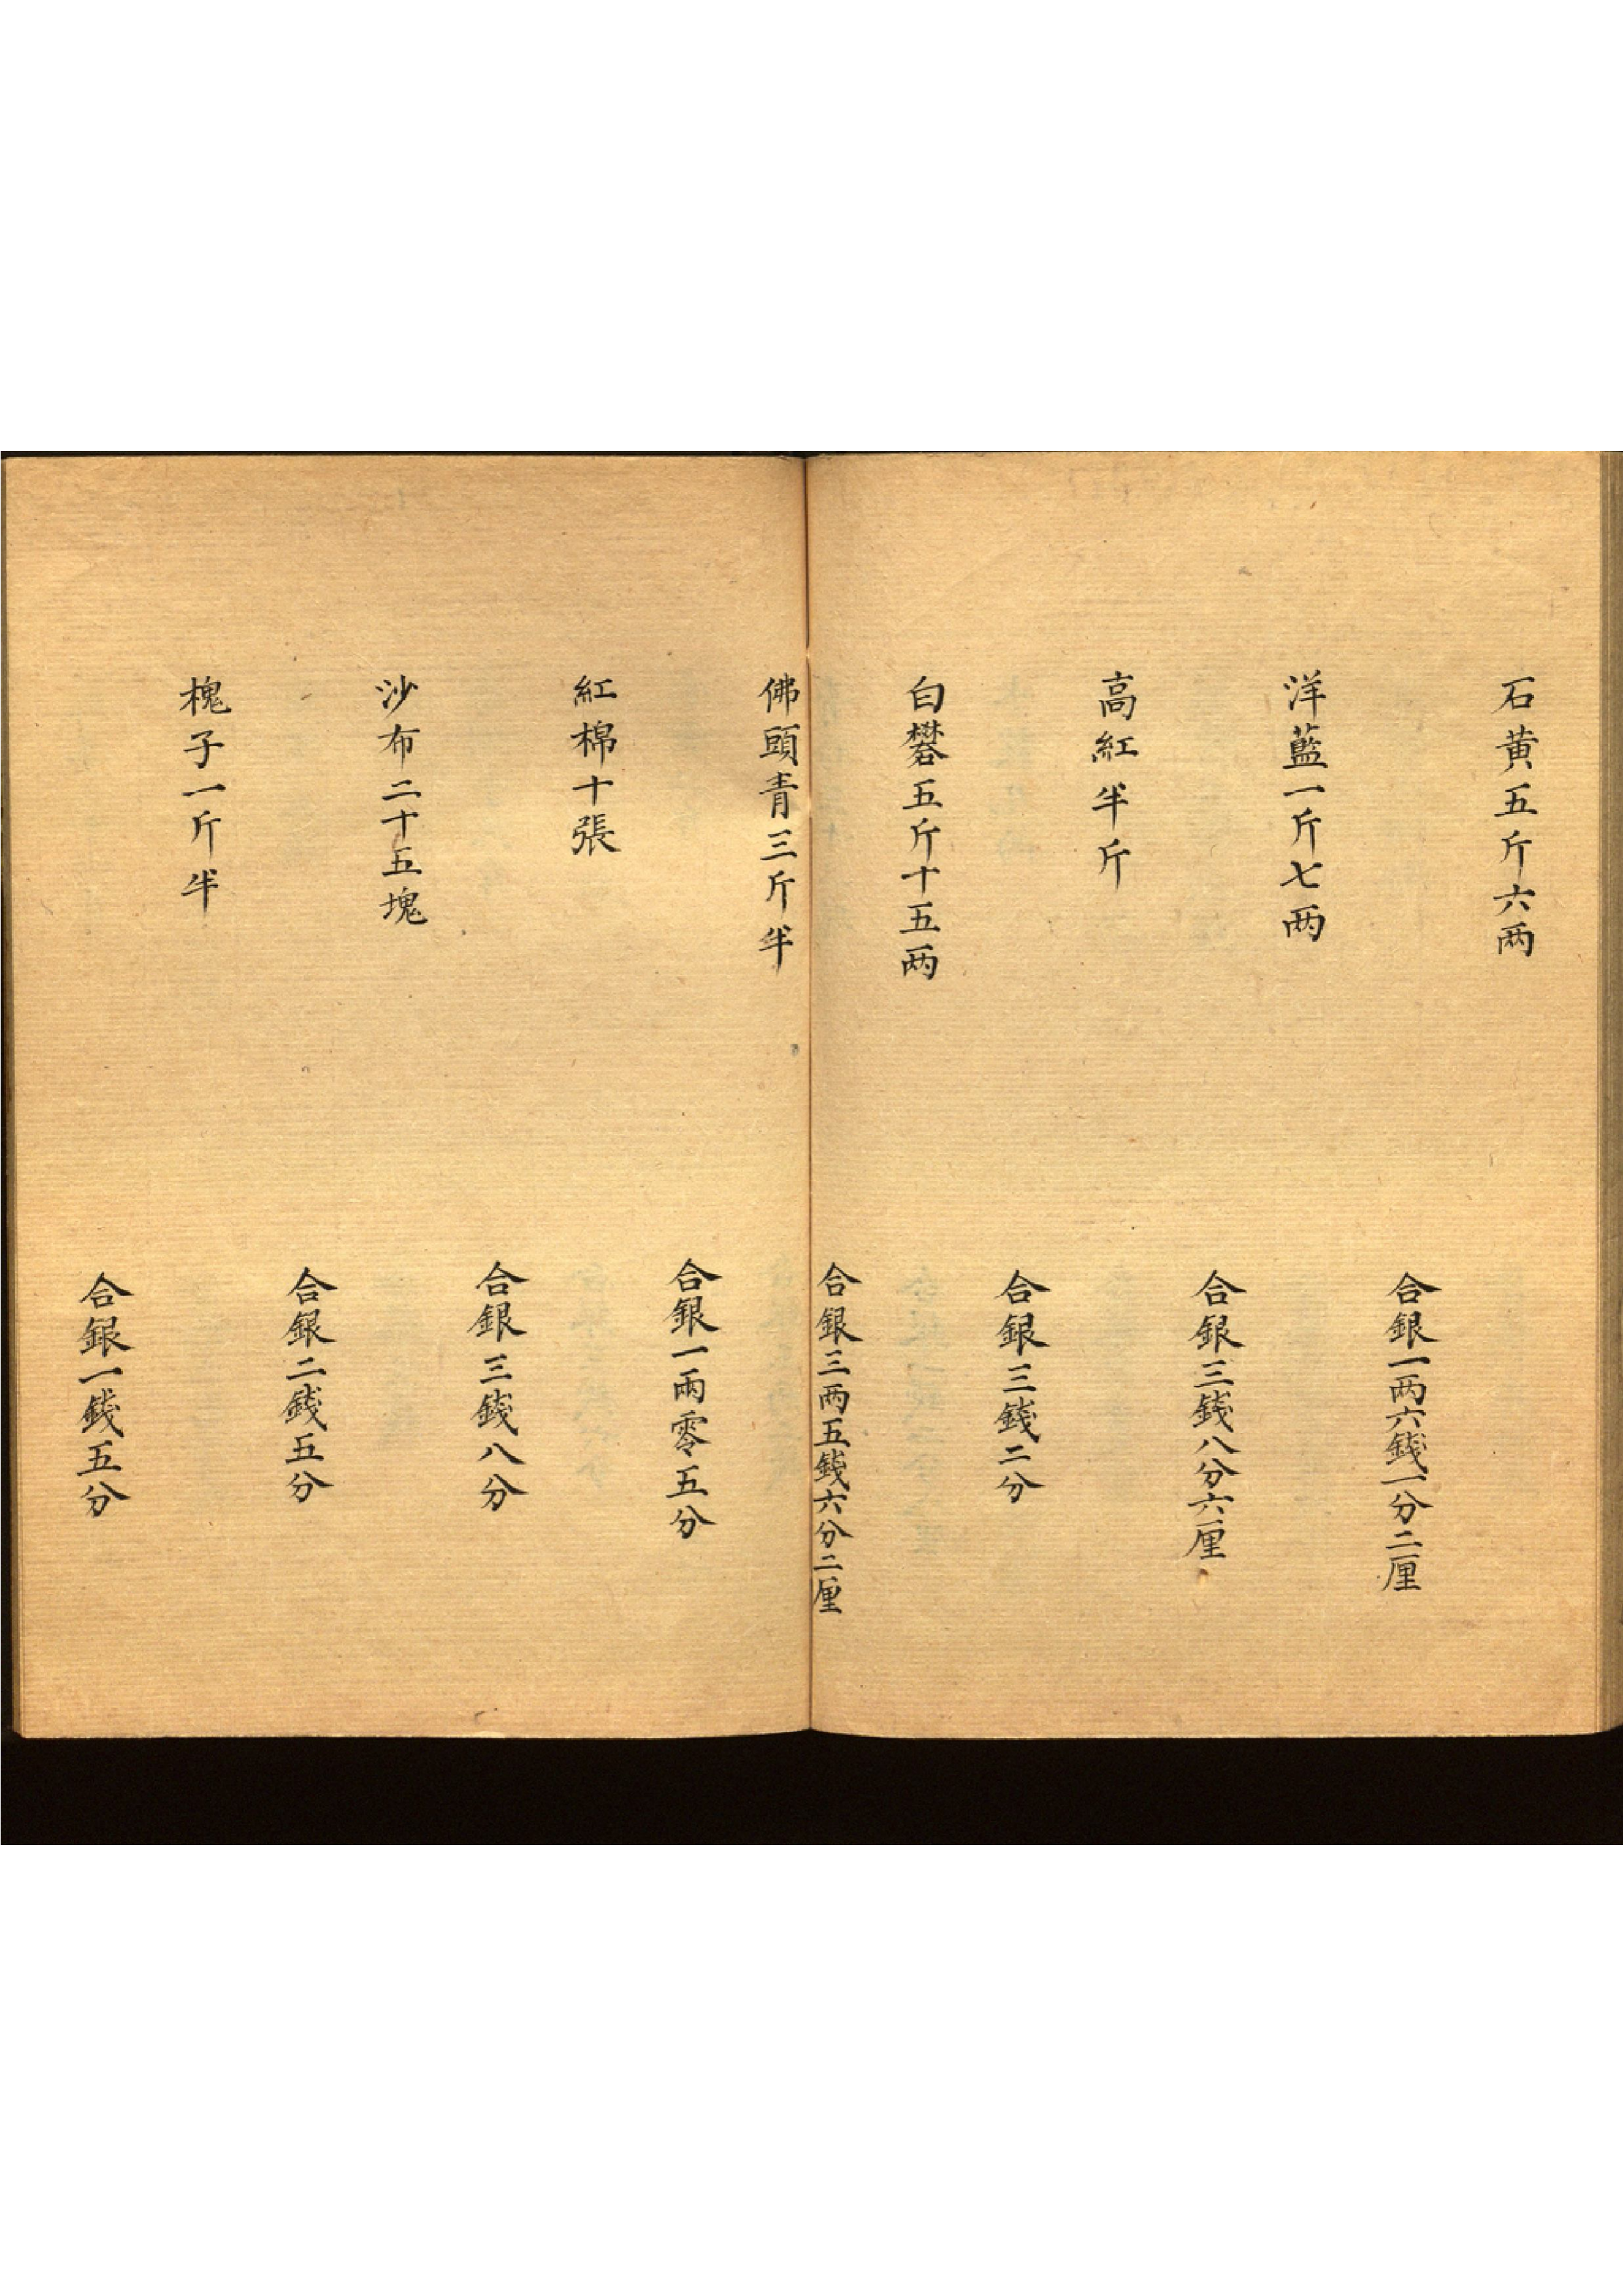 石黄五斤六两
合銀一两六錢一分二厘
洋藍一斤七两
合銀三錢八分六厘
高紅半斤
合銀三錢二分
白礬五斤十五两
合銀三两五錢六分二厘
佛頭青三斤半
合銀一兩零五分
紅棉十張
合銀三錢八分
沙布二十五塊
合銀二錢五分
槐子一斤半
合銀一錢五分